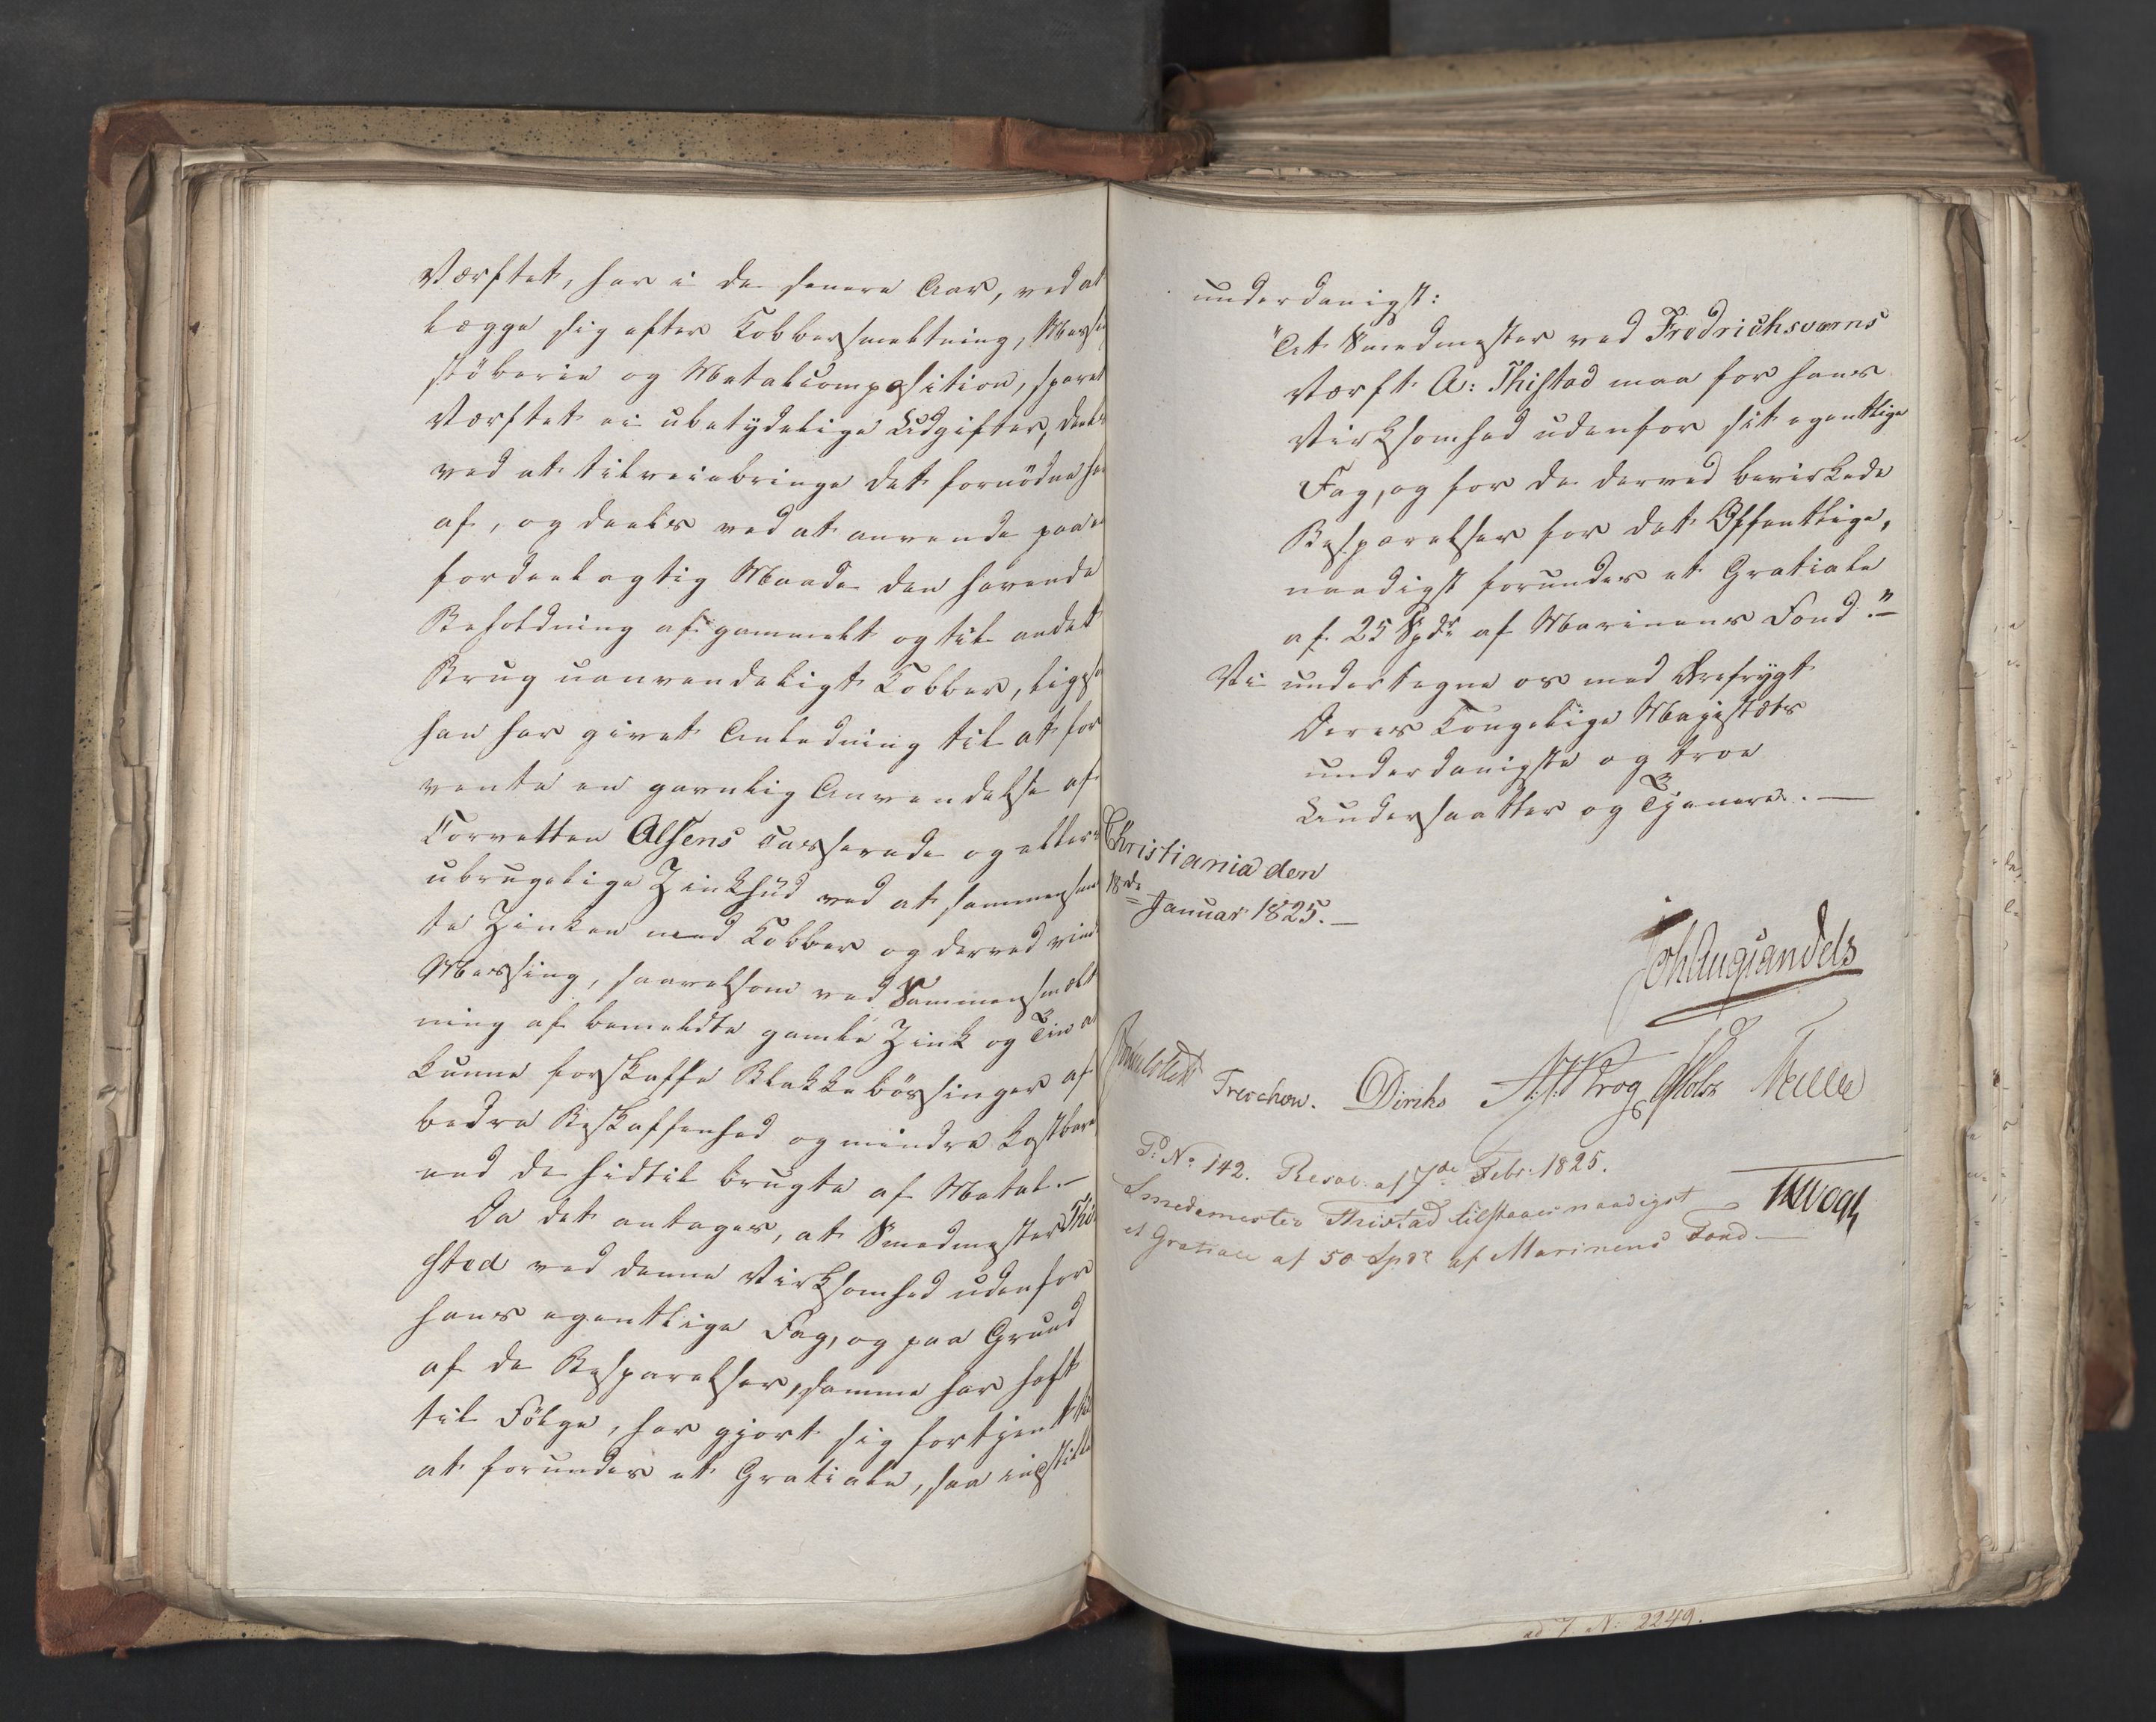 Værftet, har i de senere Aar, ved at
lægge sig efter Kobbersmeltning, Messing
støberie og Metalcomposition, sparet
Værftet ei ubetydelige Udgifter, deels
ved at tilveiebringe det fornødne her
af, og deels ved at anvende paa en
fordeelagtig Maade den havende
Beholdning af gammelt og til andet
Brug uanvendeligt Kobber, ligesom
han har givet Anledning til at for
vente en gavnlig Anvendelse af
Corvetten Alsens casserede og ellers
ubrugelige Zinkhud ved at sammensmel
te Zinken med Kobber og derved vinde
Messing, saavelsom ved Sammensmelt
ning af bemeldte gamle Zink og Tin at
kunne forskaffe Blokkebøssinger af
bedre Beskaffenhed og mindre kostbare
end de hidtil brugte af Metal.—
Da det antages, at Smedmester Thi
sted ved denne Virksomhed udenfor
hans egentlige Fag, og paa Grund
af de Besparelser, samme har haft
til Følge, har gjort sig fortjent til
at forundes et Gratiale, saa indstilles
underdanigst:
"At Smedmester ved Fredrichsværns
Værft A: Thistad maa for hans
Virksomhed udenfor sit egentlige
Fag, og for de derved bevirkede
Besparelser for det Offentlige,
naadigst forundes et Gratiale
af 25 Spdr af Marinens Fond."—
Vi undertegne os med Ærefrygt
Deres Kongelige Majestæts
underdanigste og troe
Undersaatter og Tjenere.—
Christiania den
18de Januar 1825.—
Joh Aug Sandels
Treschow. Diriks Krog Motzfeldt
P: No 142. Resol: af 7de Febr: 1825.
Smedemester Thistad tilstaaes naadigst
et Gratiale af 50 Spdr af Marinens Fond—
Vogt
ad J. N: 2249.